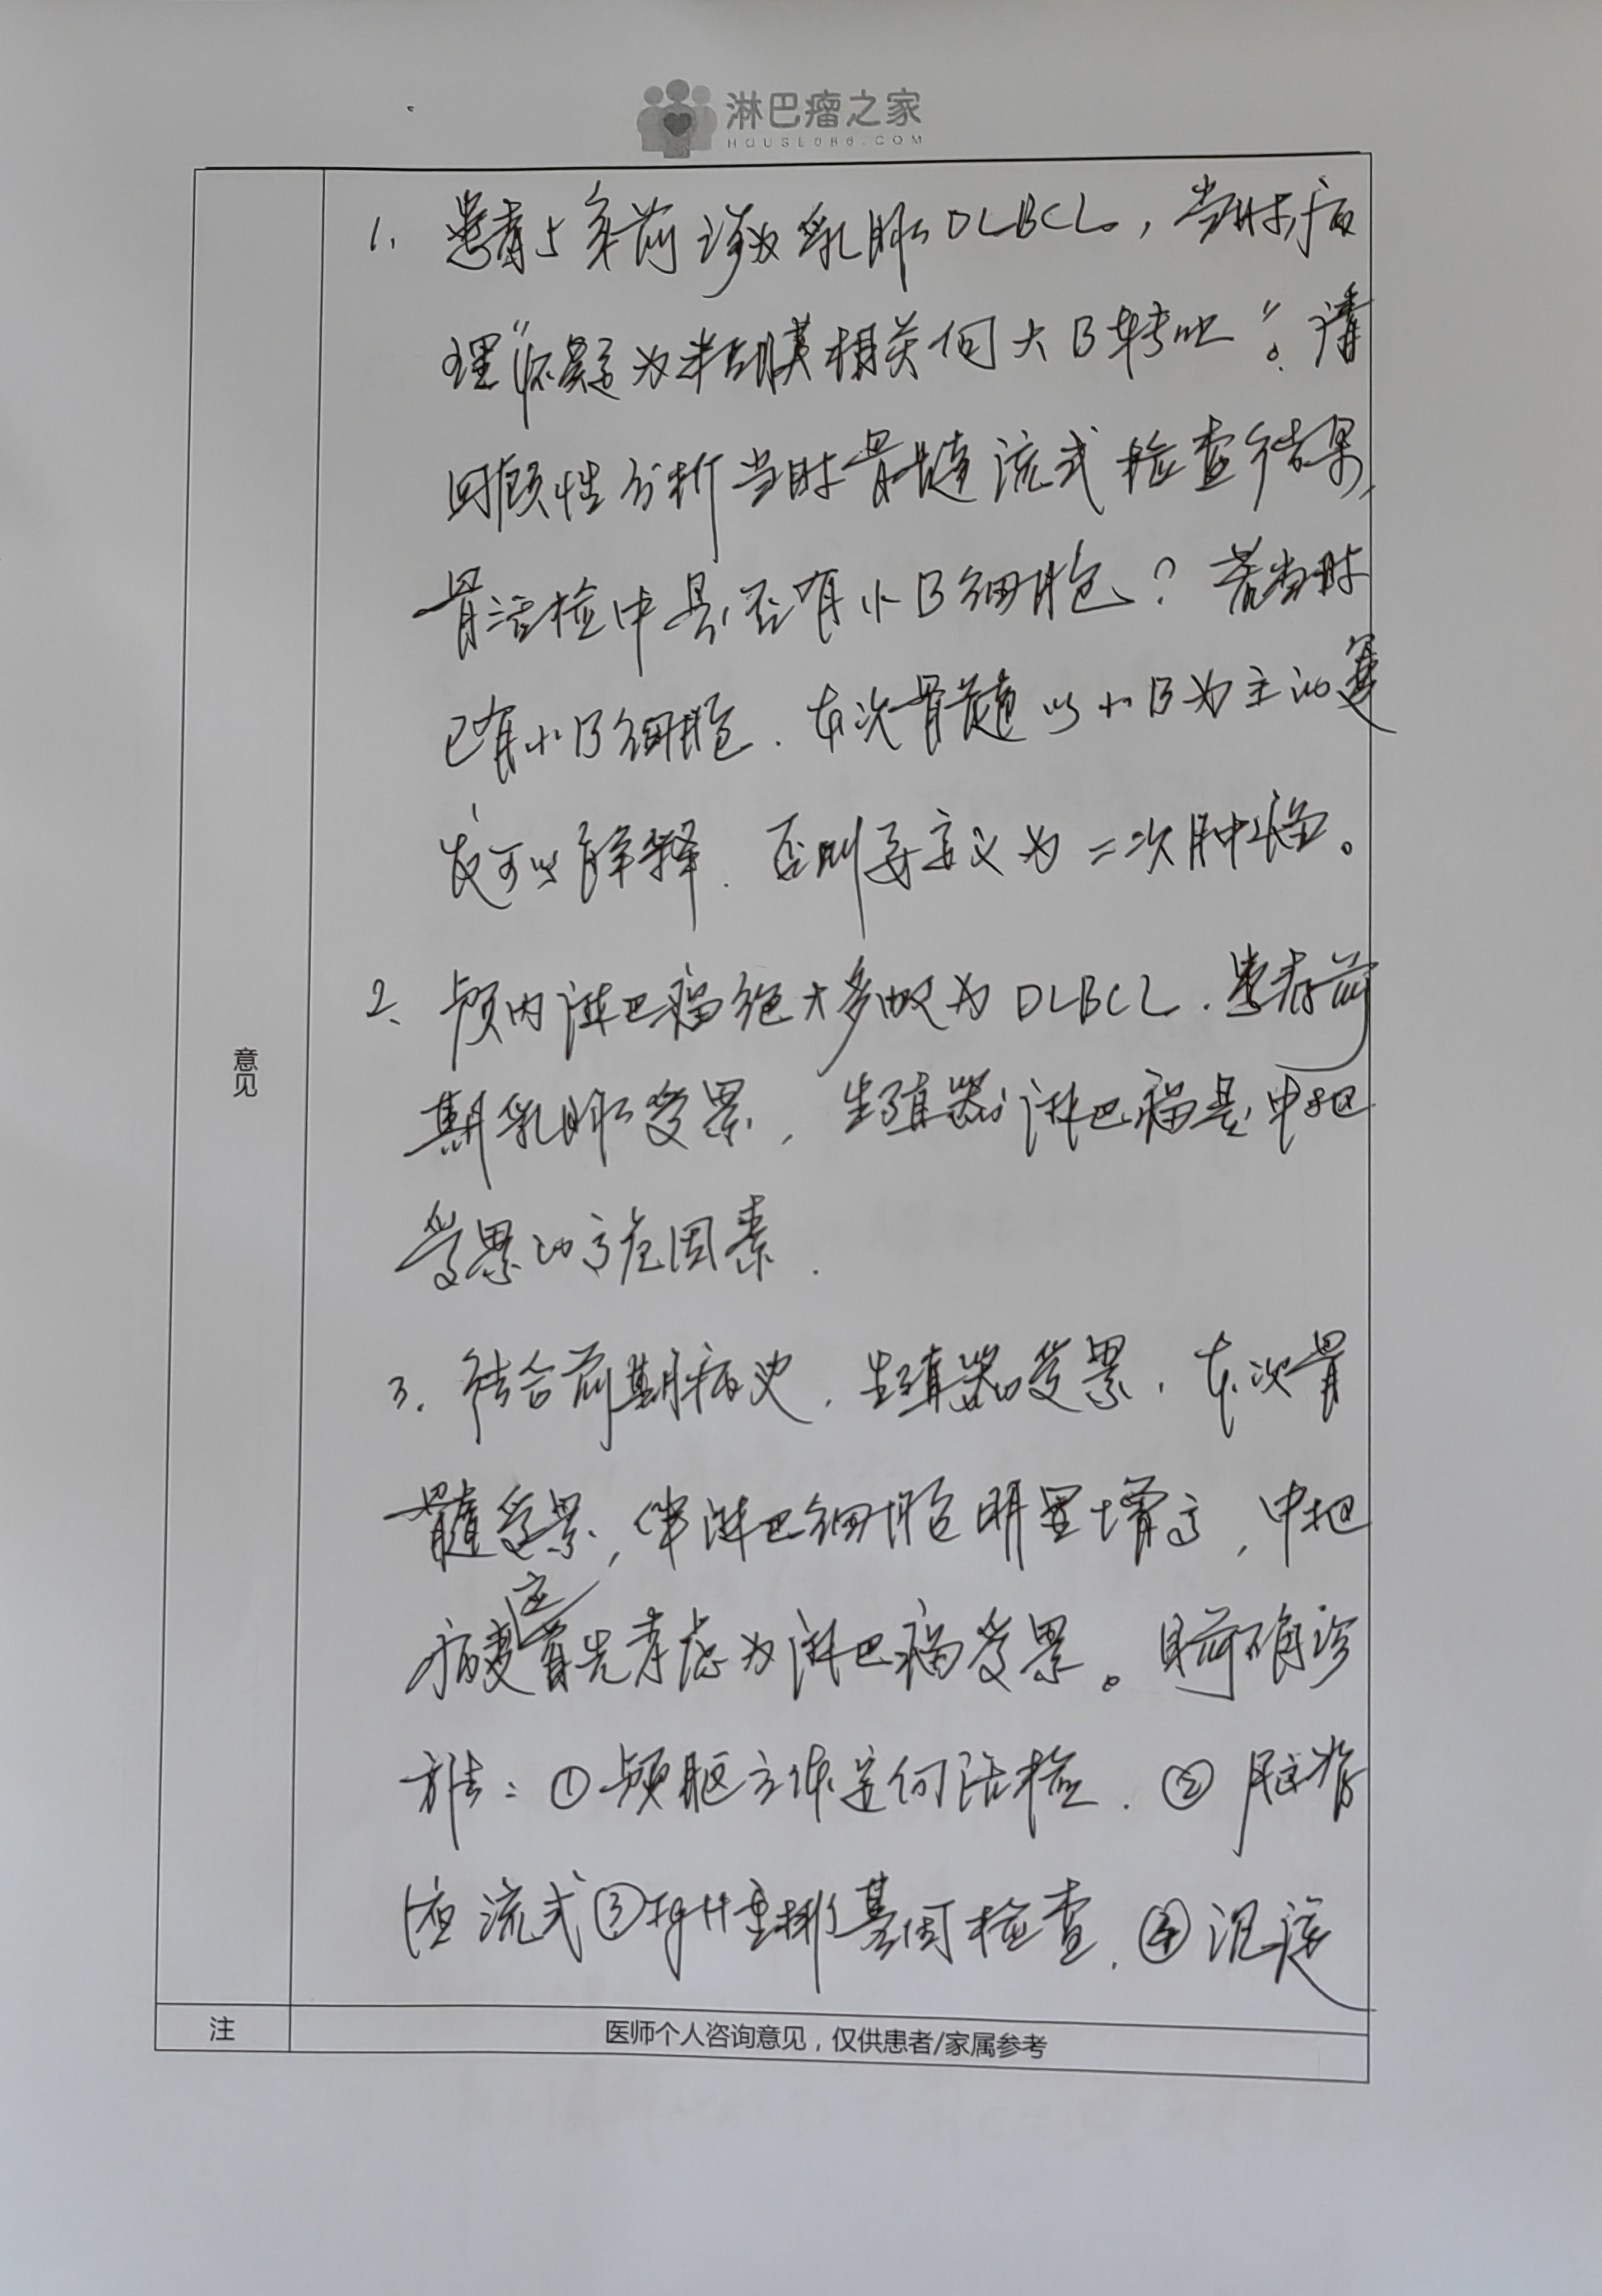 淋巴瘤之家
HOUSE086.COM
意见
1. 患者5年前诊为乳腺DLBCL，当时病
理“怀疑为粘膜相关向大B转化”。请
回顾性分析当时骨髓流式检查结果,
骨活检中是否有小B细胞？若当时
已有小B细胞．本次骨髓以小B为主的复
发可以解释．否则要定义为二次肿瘤。
2、颅内淋巴瘤绝大多数为DLBCL．患者前
期乳腺受累，生殖器淋巴瘤是中枢
受累的高危因素．
3. 结合前期病史，生殖器受累，本次骨
髓受累，伴淋巴细胞明显增高，中枢
病变应首先考虑为淋巴瘤受累。目前确诊
方法：①颅脑立体定向活检．②脑脊
液流式③重排基因检查．④
注
医师个人咨询意见，仅供患者/家属参考